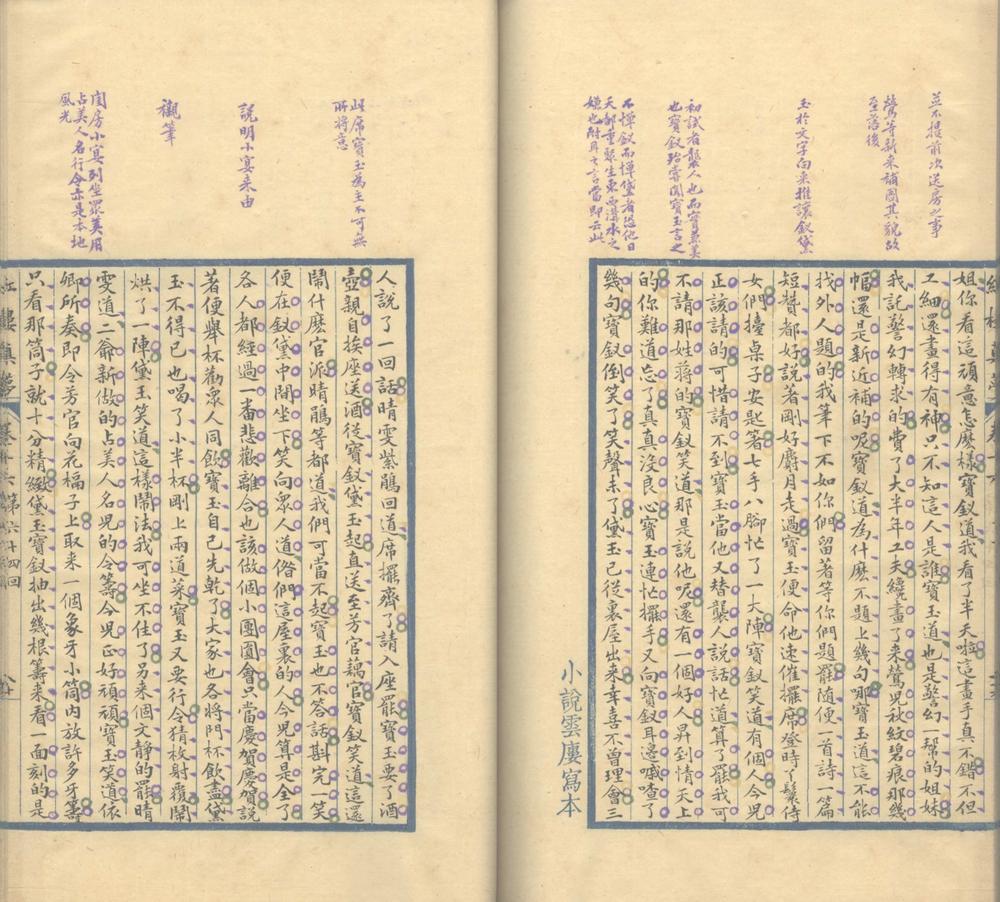 並不提前次送房之事
鶯等新來補圖其貌故
至落後
玉於文字向來推讓釵黛
初試者襲人也而寶蒹美
也寶釵殆嘗聞寶玉言之
不憚釵而憚黛者恐他日
天都重聚生東西溝水之
嫌也附耳之言當即云此
姐你看這頑意怎麽樣寶釵道我看了半天啦這畫手真不錯不但
工細還畫得有神只不知這人是誰寶玉道也是警幻一幫的姐妹
我託警幻轉求的費了大半年工夫纔畫了來鶯兒秋紋碧痕那幾
幅還是新近補的呢寶釵道為什麽不題上幾句哪寶玉道這不能
找外人題的我筆下不如你們留著等你們題罷隨便一首詩一篇
短贊都好說著剛好麝月走過寶玉便命他速催擺席登時丫鬟侍
女們擡桌子安匙箸七手八腳忙了一大陣寶釵笑道有個人今兒
正該請的可惜請不到寶玉當他又替襲人說話忙道算了罷我可
不請那姓蔣的寶釵笑道那是說他呢還有一個好人昇到情天上
的你難道忘了真真沒良心寶玉連忙擺手又向寶釵耳邊嘁喳了
幾句寶釵倒笑了笑聲未了黛玉已從裏屋出來幸喜不曾理會三
小說雲廔寫本
此席寶玉為主不可無
所將意
說明小宴來由
襯筆
閨房小宴列坐眾美用
占美人名行令亦是本地
風光
人說了一回話晴雯紫鵑回道席擺齊了請入座罷寶玉要了酒
壺親自挨座送酒從寶釵黛玉起直送至芳官藕官寶釵笑道這還
鬧什麽官派晴鵑等都道我們可當不起寶玉也不答話斟完一笑
便在釵黛中間坐下笑向眾人道偺們這屋裏的人今兒算是全了
各人都經過一番悲歡離合也該做個小團圓會只當慶賀慶賀說
著便舉杯勸衆人同飲寶玉自己先乾了大家也各將門杯飲盡黛
玉不得已也喝了小半杯剛上兩道菜寶玉又要行令猜枚射覆鬧
烘了一陣黛玉笑道這樣鬧法我可坐不住了另来個文靜的罷晴
雯道二爺新做的占美人名兒的令籌今兒正好頑頑寶玉笑道依
卿所奏即令芳官向花槅子上取来一個象牙小筒内放許多牙籌
只看那筒子就十分精緻黛玉寶釵抽出幾根籌来看一面刻的是
第六十四回